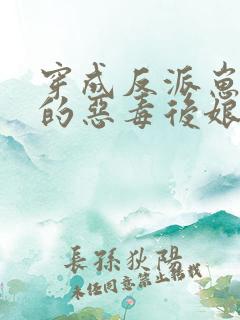 穿成反派崽
的惡毒後娘
長孫狄陽
未经同意禁止转载